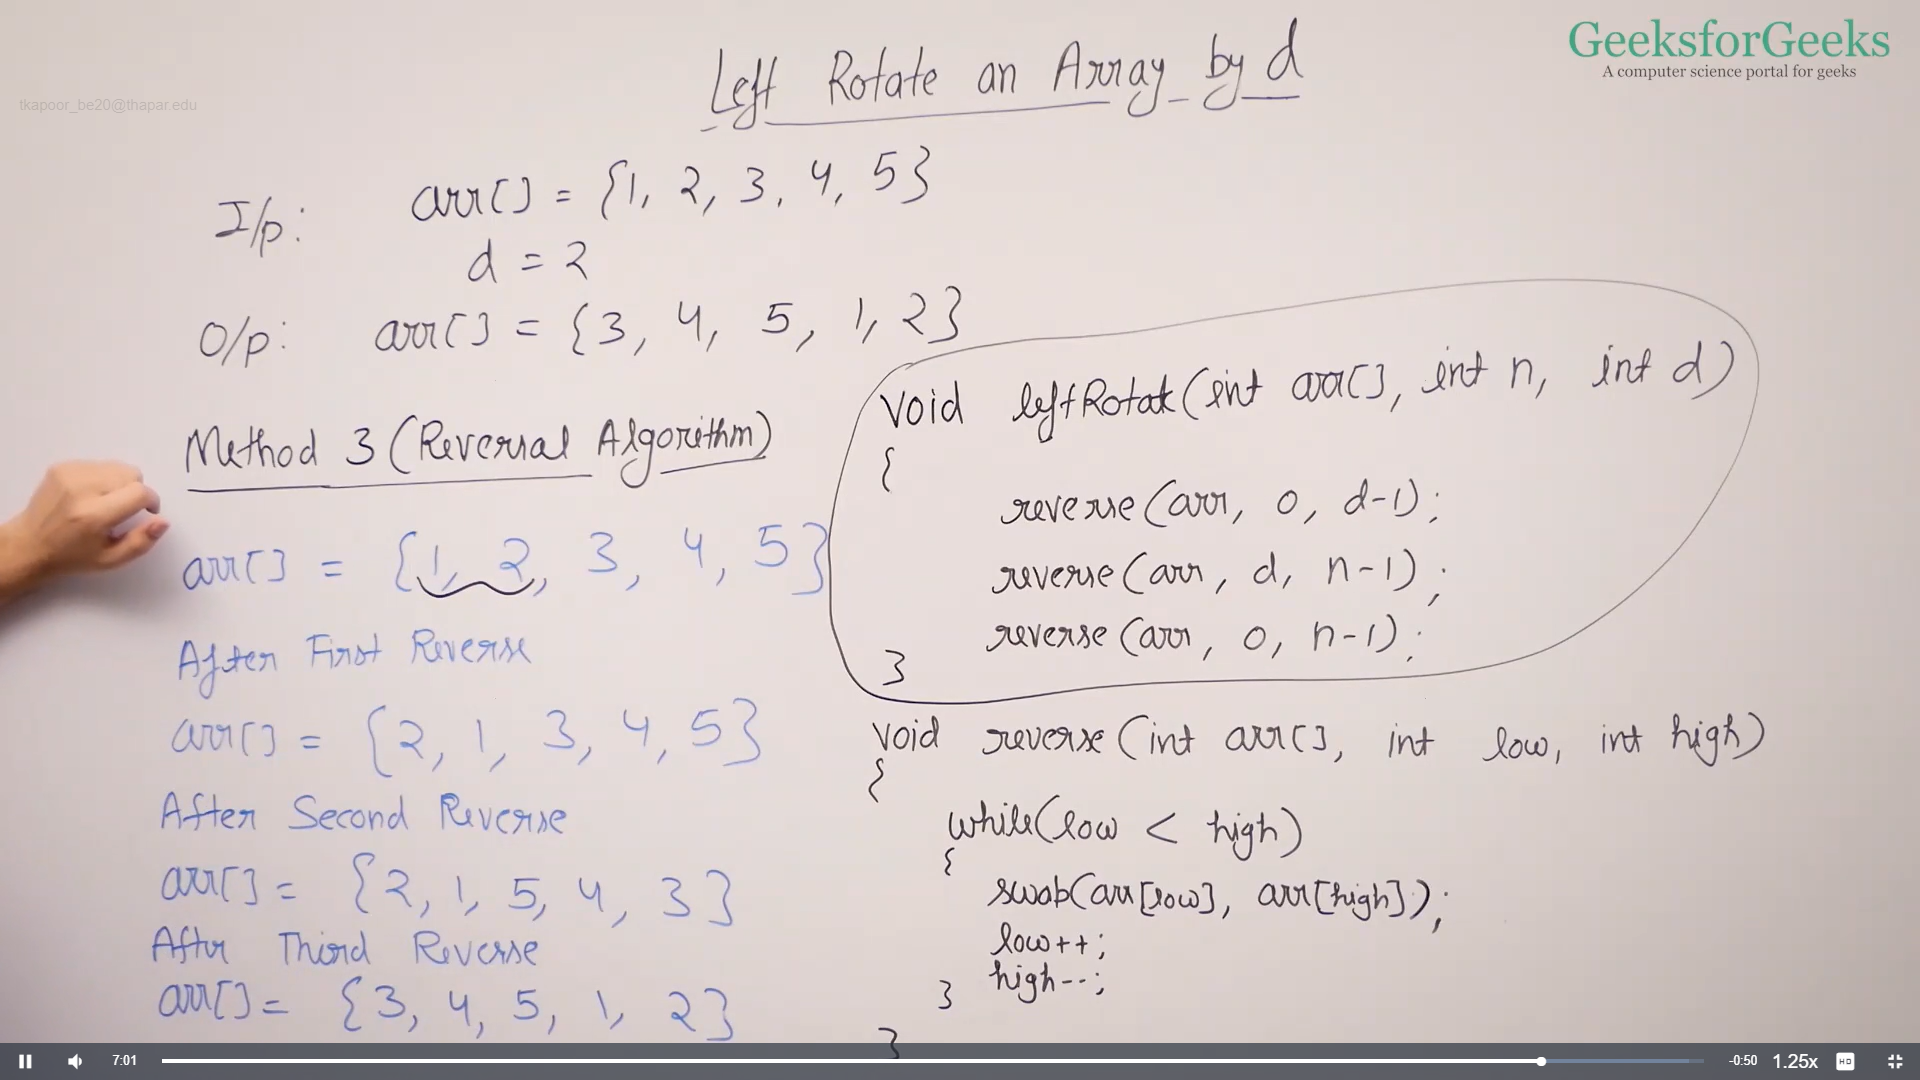 GeeksforGeeks
A computer science portal for geeks
tkapoor_be20@thapar.edu
Left Rotate an Array by d
I/p: arr[] = {1, 2, 3, 4, 5}
d = 2
O/p: arr[] = {3, 4, 5, 1, 2}
Method 3 (Reversal Algorithm)
arr[] = {1, 2, 3, 4, 5}
After First Reverse
arr[] = {2, 1, 3, 4, 5}
After Second Reverse
arr[] = {2, 1, 5, 4, 3}
After Third Reverse
arr[] = {3, 4, 5, 1, 2}
void leftRotate(int arr[], int n, int d)
{
reverse(arr, 0, d-1);
reverse(arr, d, n-1);
reverse(arr, 0, n-1);
}
void reverse(int arr[], int low, int high)
{
while(low < high)
{
swap(arr[low], arr[high]);
low++;
high--;
}
}
7:01
-0:50
1.25x
HD